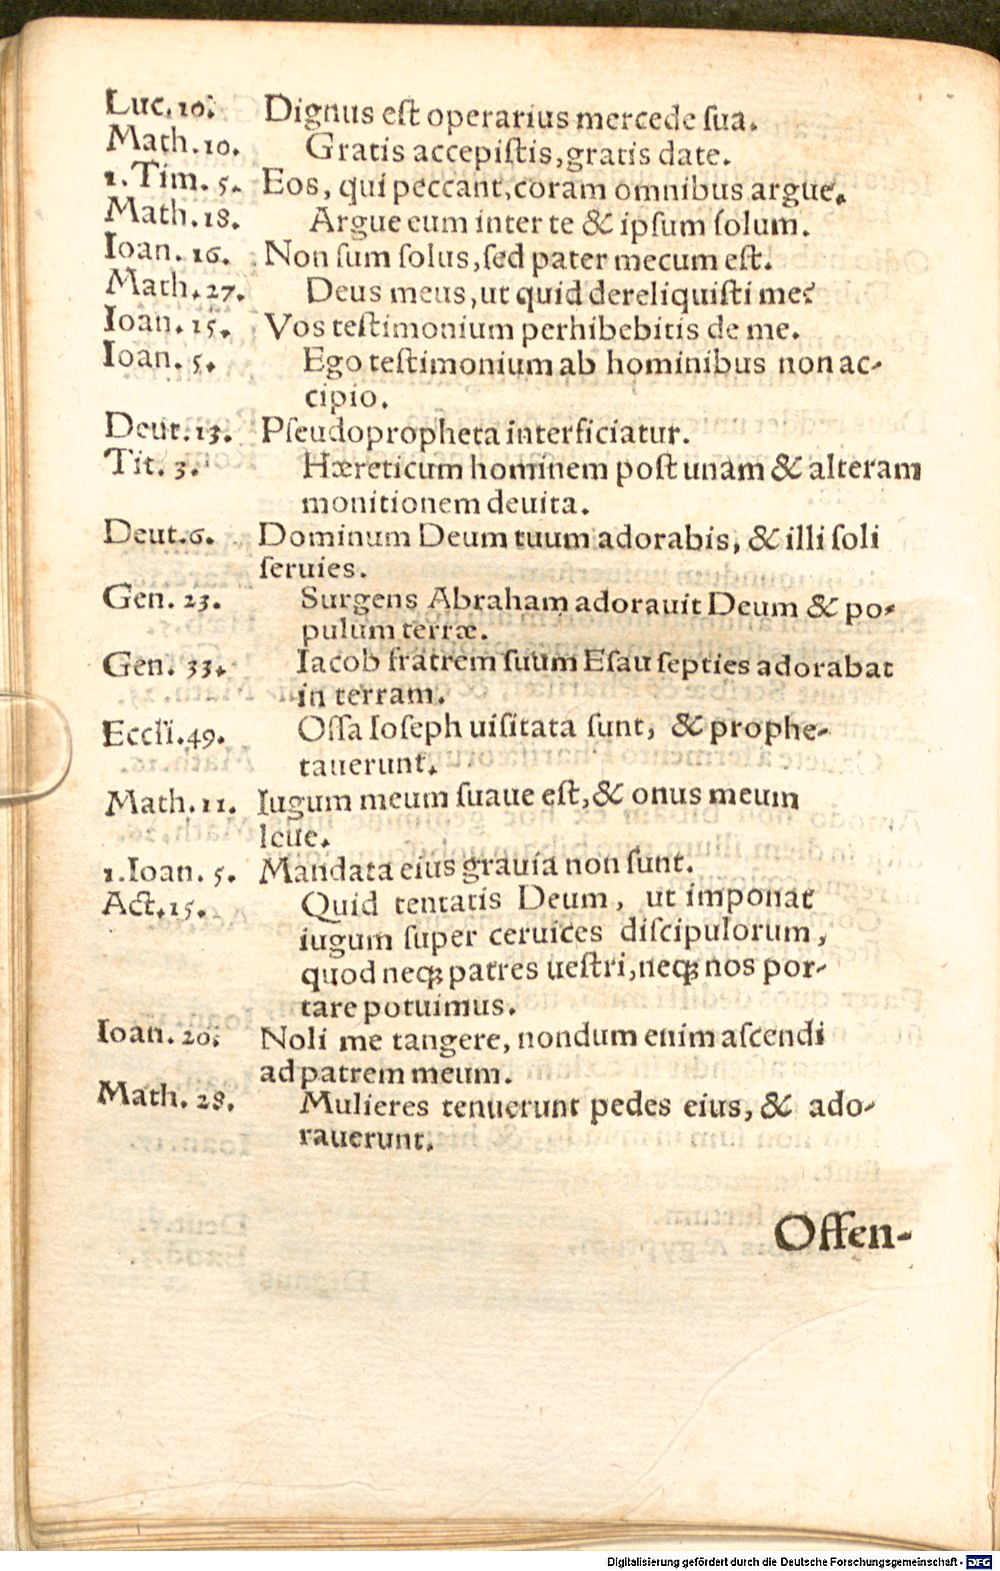 Luc. 10. Dignus eſt operarius mercede ſua.
Math. 10. Gratis accepiſtis, gratis date.
1. Tim. 5. Eos, qui peccant, coram omnibus argue.
Math. 18. Argue eum inter te & ipſum ſolum.
Ioan. 16. Non ſum ſolus, ſed pater mecum eſt.
Math. 27. Deus meus, ut quid dereliquiſti me?
Ioan. 15. Vos teſtimonium perhibebitis de me.
Ioan. 5. Ego teſtimonium ab hominibus non ac-
cipio.
Deut. 13. Pſeudopropheta interficiatur.
Tit. 3. Hæreticum hominem poſt unam & alteram
monitionem deuita.
Deut. 6. Dominum Deum tuum adorabis, & illi ſoli
ſeruies.
Gen. 23. Surgens Abraham adorauit Deum & po-
pulum terræ.
Gen. 33. Iacob fratrem ſuum Eſau ſepties adorabat
in terram.
Eccli. 49. Oſſa Ioſeph uiſitata ſunt, & prophe-
tauerunt.
Math. 11. Iugum meum ſuaue eſt, & onus meum
leue.
1. Ioan. 5. Mandata eius grauia non ſunt.
Act. 15. Quid tentatis Deum, ut imponat
iugum ſuper ceruices diſcipulorum,
quod neq; patres ueſtri, neq; nos por-
tare potuimus.
Ioan. 20. Noli me tangere, nondum enim aſcendi
ad patrem meum.
Math. 28. Mulieres tenuerunt pedes eius, & ado-
rauerunt.
Offen-
Digitalisierung gefördert durch die Deutsche Forschungsgemeinschaft - DFG